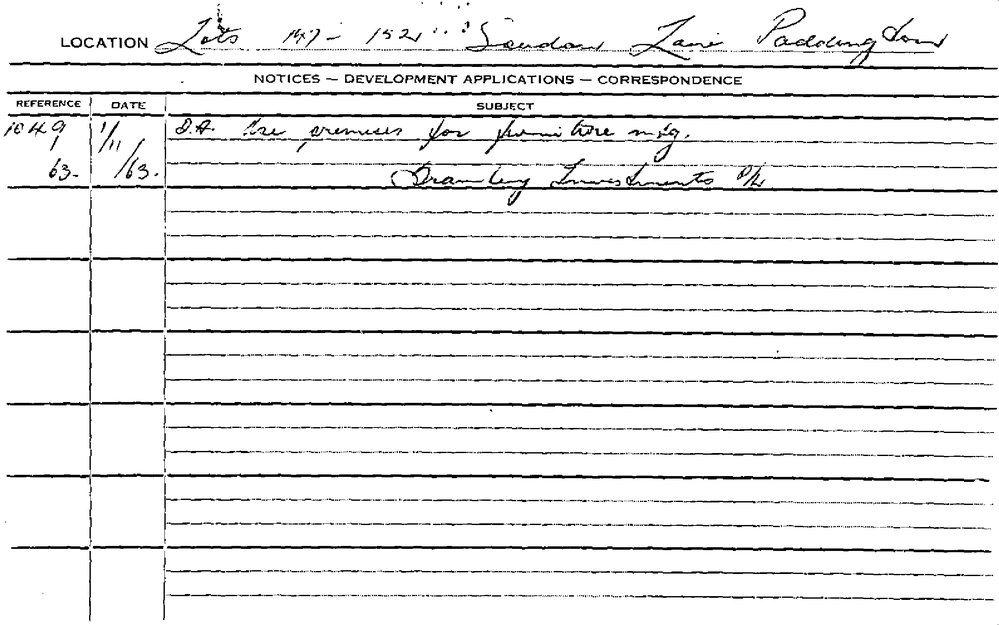 LOCATION Lots 147 - 152 Soudan Lane Paddington
NOTICES — DEVELOPMENT APPLICATIONS — CORRESPONDENCE
REFERENCE DATE SUBJECT
1049/63- 1/11/63. D.A. Use premises for furniture mfg.
Investments P/L